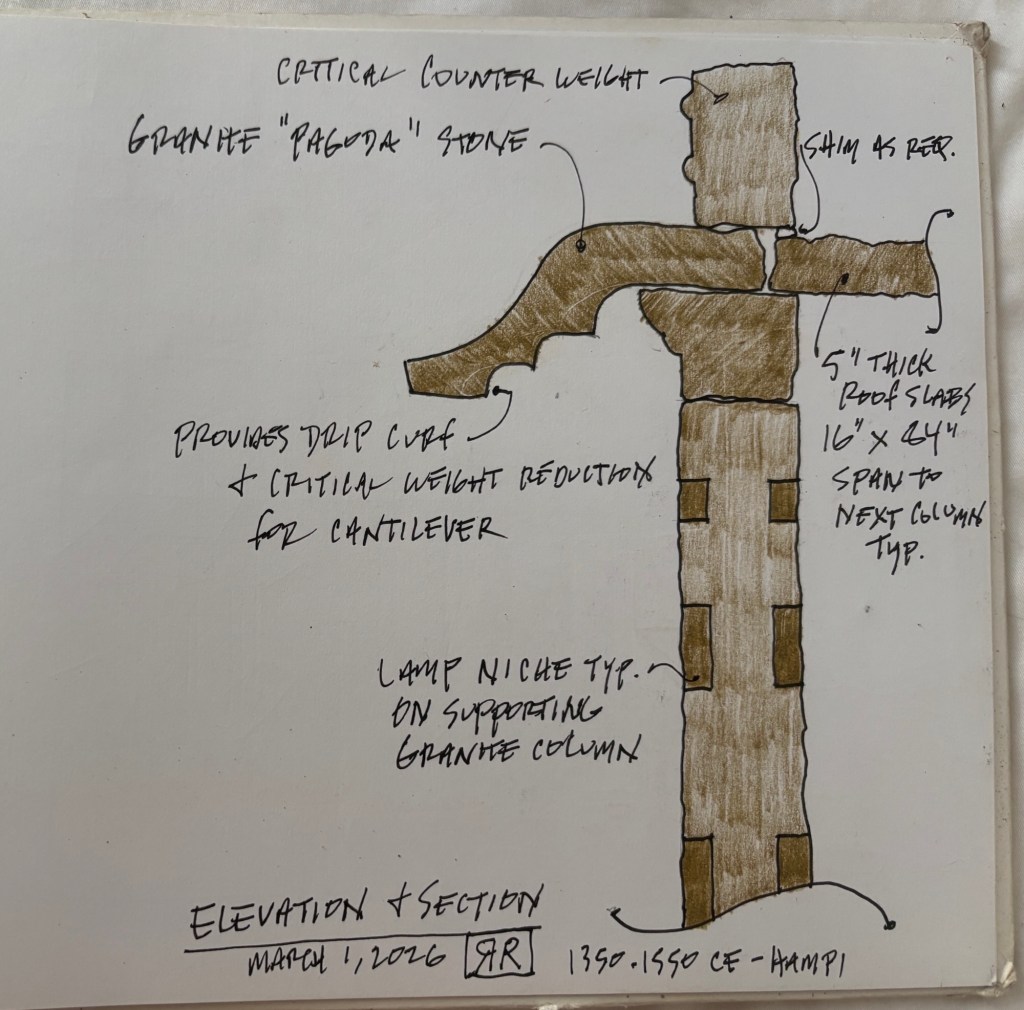 CRITICAL COUNTER WEIGHT
GRANITE "PAGODA" STONE
SHIM AS REQ.
5" THICK
ROOF SLABS
16" X 84"
SPAN TO
NEXT COLUMN
TYP.
PROVIDES DRIP CURF
+ CRITICAL WEIGHT REDUCTION
FOR CANTILEVER
LAMP NICHE TYP.
ON SUPPORTING
GRANITE COLUMN
ELEVATION + SECTION
MARCH 1, 2026 ЯR 1350-1550 CE - HAMPI